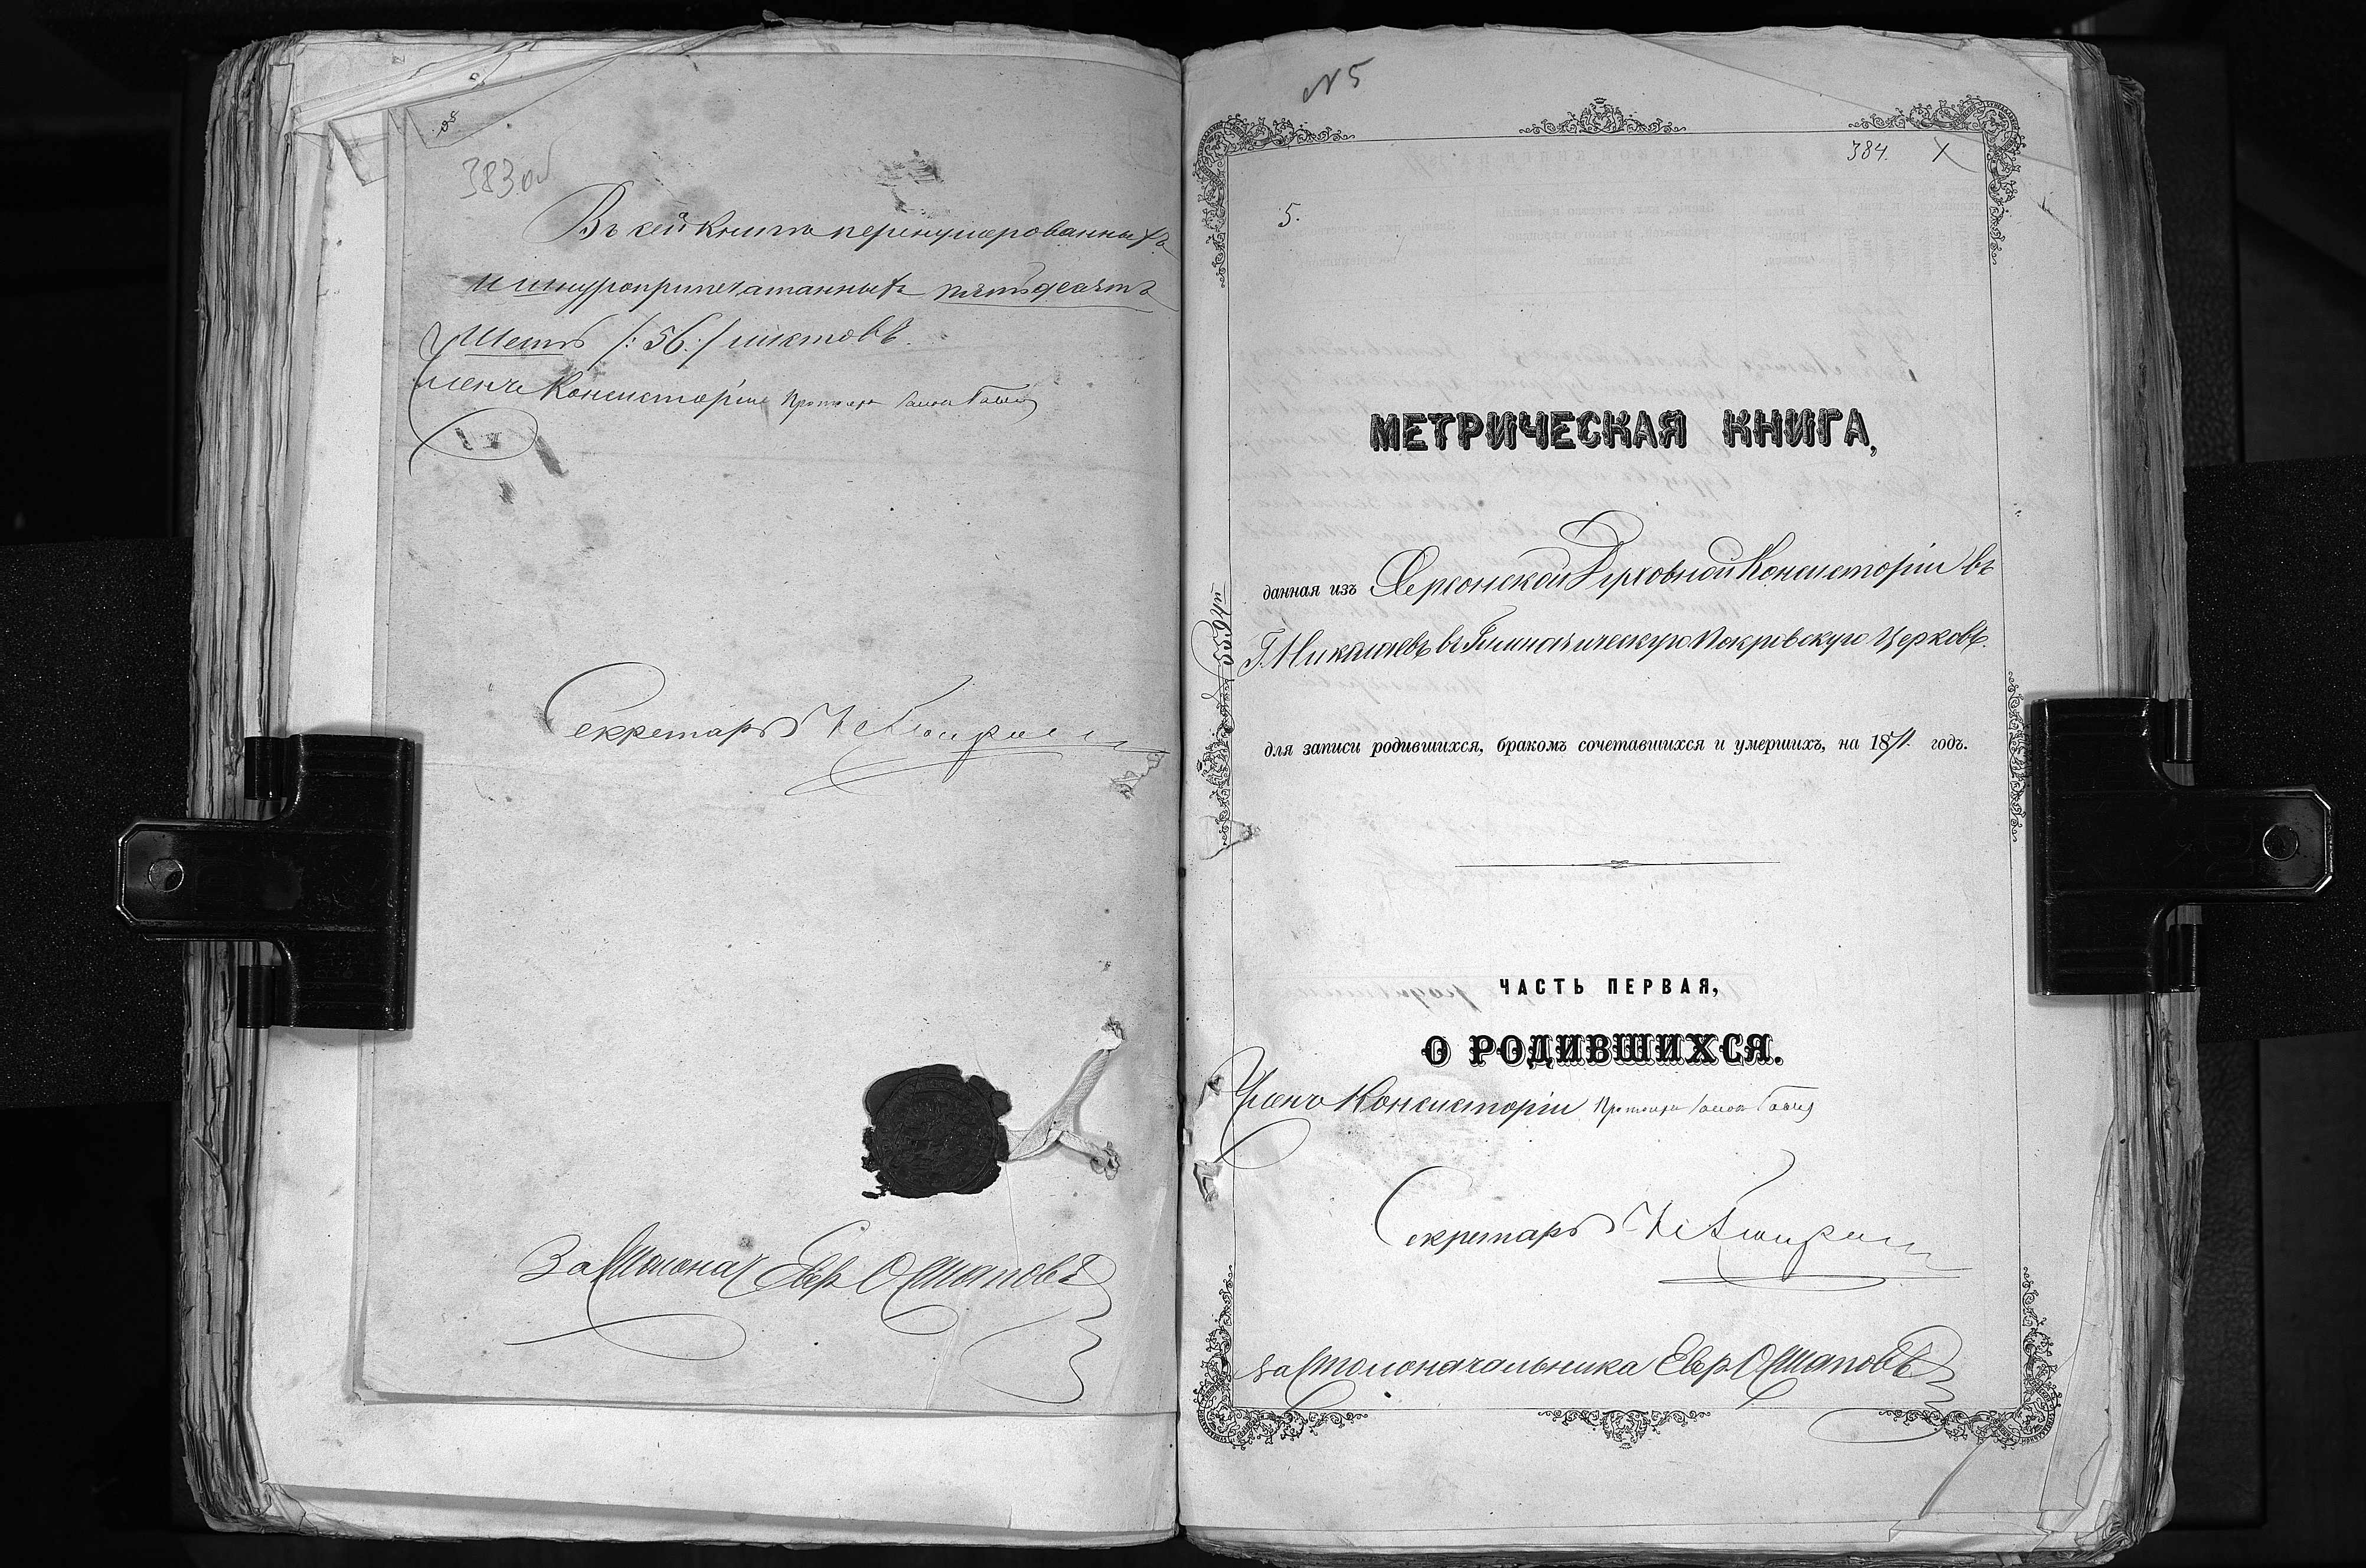 383 об
Въ сей книгѣ перенумерованныхъ
и шнуроприпечатанныхъ пятьдесятъ
шесть /:56:/ листовъ.
Членъ Консисторіи Протоіерей
Секретарь
За Столонач Евр Осташовъ
№ 5
384. X
5.
МЕТРИЧЕСКАЯ КНИГА,
данная изъ Херсонской Духовной Консисторіи въ
Г. Николаевъ въ Гимназическую Покровскую Церковь.
для записи родившихся, бракомъ сочетавшихся и умершихъ, на 1871. годъ.
ЧАСТЬ ПЕРВАЯ,
О РОДИВШИХСЯ.
Членъ Консисторіи Протоіерей
Секретарь
за Столоначальника